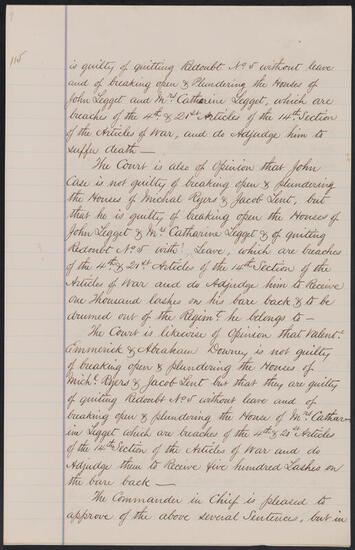 115
is guilty of quitting Redoubt No 5 without leave
and of breaking open & Plundering the Houses of
John Legget and Mrs Catharine Legget, which are
breaches of the 4th & 21st Articles of the 14th Section
of the Articles of War, and do Adjudge him to
suffer death —
The Court is also of Opinion that John
Case is not guilty of breaking open & plundering
the Houses of Michal Ryers & Jacob Lent, but
that he is guilty of breaking open the Houses of
John Legget & Mrs Catharine Legget & of quiting
Redoubt No 5 witht Leave, which are breaches
of the 4th & 21st Articles of the 14th Section of the
Articles of War and do Adjudge him to Receive
One Thousand lashes on his bare back & to be
drumed out of the Regimt he belongs to —
The Court is likewise of Opinion that Valent.
Emmerick & Abraham Downey is not guilty
of breaking open & plundering the Houses of
Michl. Ryers & Jacob Lent but that they are guilty
of quiting Redoubt No 5 without leave and of
breaking open & plundering the House of Mrs Cathar-
ine Legget which are breaches of the 4th & 21st Articles
of the 14th Section of the Articles of War and do
Adjudge them to Receive Five hundred Lashes on
the bare back —
The Commander in Chief is pleased to
approve of the above several Sentences, but in